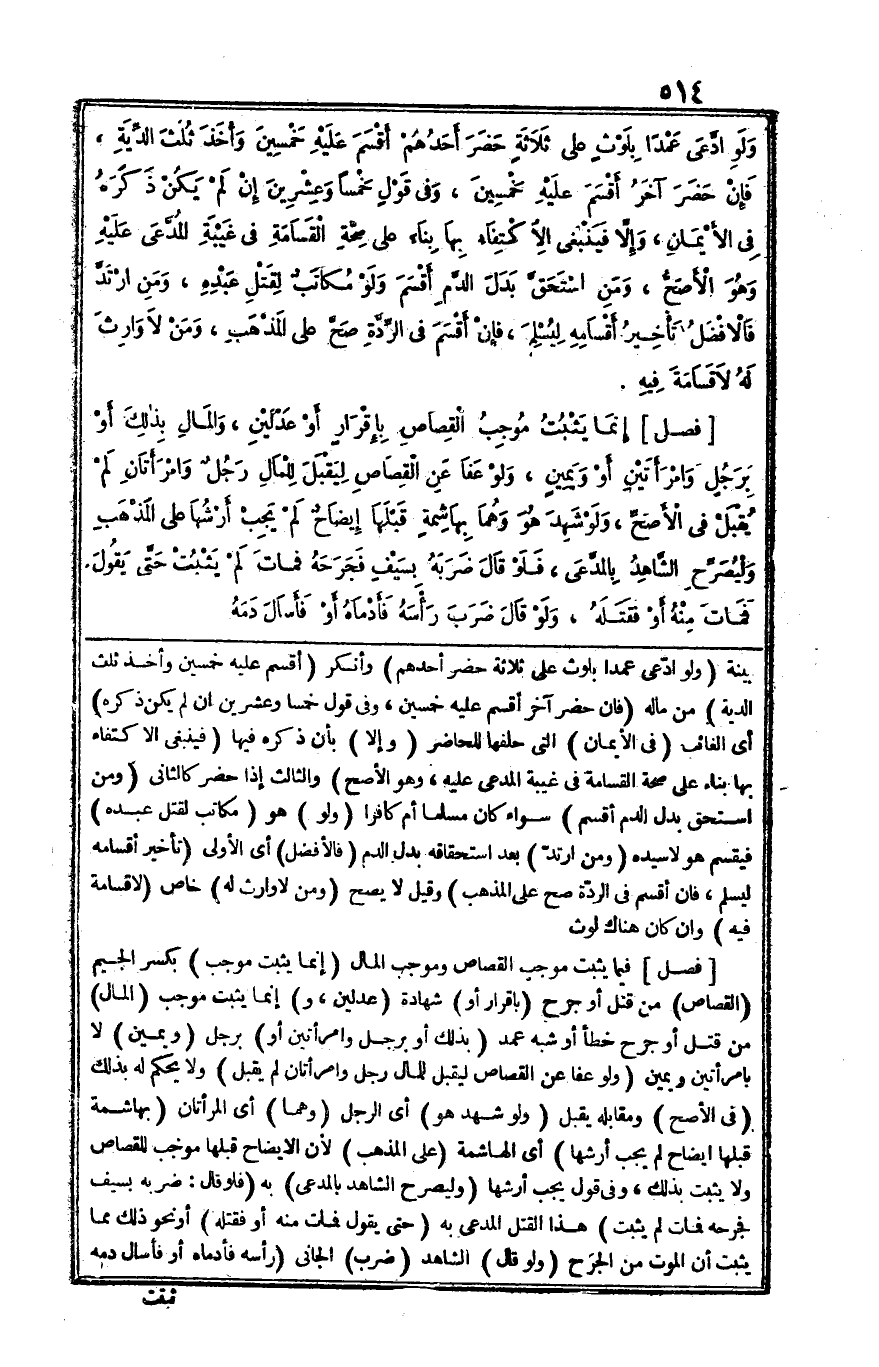 ٥١٤
وَلَوِ ادَّعَى عَمْدًا بِلَوْثٍ عَلَى ثَلَاثَةٍ حَضَرَ أَحَدُهُمْ أَقْسَمَ عَلَيْهِ خَمْسِينَ وَأَخَذَ ثُلُثَ الدِّيَةِ ،
فَإِنْ حَضَرَ آخَرُ أَقْسَمَ عَلَيْهِ خَمْسِينَ ، وَفِى قَوْلٍ خَمْسًا وَعِشْرِينَ إِنْ لَمْ يَكُنْ ذَكَرَهُ
فِى الْأَيْمَانِ ، وَإِلَّا فَيَنْبَغِى الِاكْتِفَاءُ بِهَا بِنَاءً عَلَى صِحَّةِ الْقَسَامَةِ فِى غَيْبَةِ الْمُدَّعَى عَلَيْهِ
وَهُوَ الْأَصَحُّ ، وَمَنِ اسْتَحَقَّ بَدَلَ الدَّمِ أَقْسَمَ وَلَوْ مُكَاتَبٌ لِقَتْلِ عَبْدِهِ ، وَمَنِ ارْتَدَّ
فَالْأَفْضَلُ تَأْخِيرُ أَقْسَامِهِ لِيُسْلِمَ ، فَإِنْ أَقْسَمَ فِى الرِّدَّةِ صَحَّ عَلَى الْمَذْهَبِ ، وَمَنْ لَا وَارِثَ
لَهُ لَا قَسَامَةَ فِيهِ .
[ فصل ] إِنَّمَا يَثْبُتُ مُوجِبُ الْقِصَاصِ بِإِقْرَارٍ أَوْ عَدْلَيْنِ ، وَالْمَالِ بِذٰلِكَ أَوْ
بِرَجُلٍ وَامْرَأَتَيْنِ أَوْ وَيَمِينٍ ، وَلَوْ عَفَا عَنِ الْقِصَاصِ لِيَقْبَلَ لِلْمَالِ رَجُلٌ وَامْرَأَتَانِ لَمْ
يُقْبَلْ فِى الْأَصَحِّ ، وَلَوْ شَهِدَ هُوَ وَهُمَا بِهَاشِمَةٍ قَبْلَهَا إِيضَاحٌ لَمْ يَجِبْ أَرْشُهَا عَلَى الْمَذْهَبِ
وَلْيُصَرِّحِ الشَّاهِدُ بِالْمُدَّعَى ، فَلَوْ قَالَ ضَرَبَهُ بِسَيْفٍ فَجَرَحَهُ فَمَاتَ لَمْ يَثْبُتْ حَتَّى يَقُولَ
فَمَاتَ مِنْهُ أَوْ فَقَتَلَهُ ، وَلَوْ قَالَ ضَرَبَ رَأْسَهُ فَأَدْمَاهُ أَوْ فَأَسَالَ دَمَهُ
بينة (ولو ادّعى عمدا بلوث على ثلاثة حضر أحدهم) وأنكر (أقسم عليه خمسين وأخذ ثلث
الدية) من ماله (فان حضر آخر أقسم عليه خمسين ، وفى قول خمسا وعشرين ان لم يكن ذكره)
أى الغائب (فى الأيمان) التى حلفها للحاضر (وإلا) بأن ذكره فيها (فينبغى الاكتفاء
بها بناء على صحة القسامة فى غيبة المدعى عليه ، وهو الأصح) والثالث إذا حضر كالثانى (ومن
استحق بدل الدم أقسم) سواء كان مسلما أم كافرا (ولو) هو (مكاتب لقتل عبده)
فيقسم هو لاسيده (ومن ارتدّ) بعد استحقاقه بدل الدم (فالأفضل) أى الأولى (تأخير أقسامه
ليسلم ، فان أقسم فى الردّة صح على المذهب) وقيل لا يصح (ومن لاوارث له) خاص (لاقسامة
فيه) وان كان هناك لوث
[ فصل ] فيما يثبت موجب القصاص وموجب المال (إنما يثبت موجب) بكسر الجيم
(القصاص) من قتل أو جرح (باقرار أو) شهادة (عدلين ، و) إنما يثبت موجب (المال)
من قتل أو جرح خطأ أو شبه عمد (بذلك أو برجل وامرأتين أو) برجل (ويمين) لا
بامرأتين ويمين (ولو عفا عن القصاص ليقبل للمال رجل وامرأتان لم يقبل) ولا يحكم له بذلك
(فى الأصح) ومقابله يقبل (ولو شهد هو) أى الرجل (وهما) أى المرأتان (بهاشمة
قبلها ايضاح لم يجب أرشها) أى الهاشمة (على المذهب) لأن الايضاح قبلها موجب للقصاص
ولا يثبت بذلك ، وفى قول يجب أرشها (وليصرح الشاهد بالمدعى) به (فلو قال : ضربه بسيف
فجرحه فمات لم يثبت) هذا القتل المدعى به (حتى يقول فمات منه أو فقتله) أونحو ذلك مما
يثبت أن الموت من الجرْح (ولو قال) الشاهد (ضرب) الجانى (رأسه فأدماه أو فأسال دمه
ثبتت